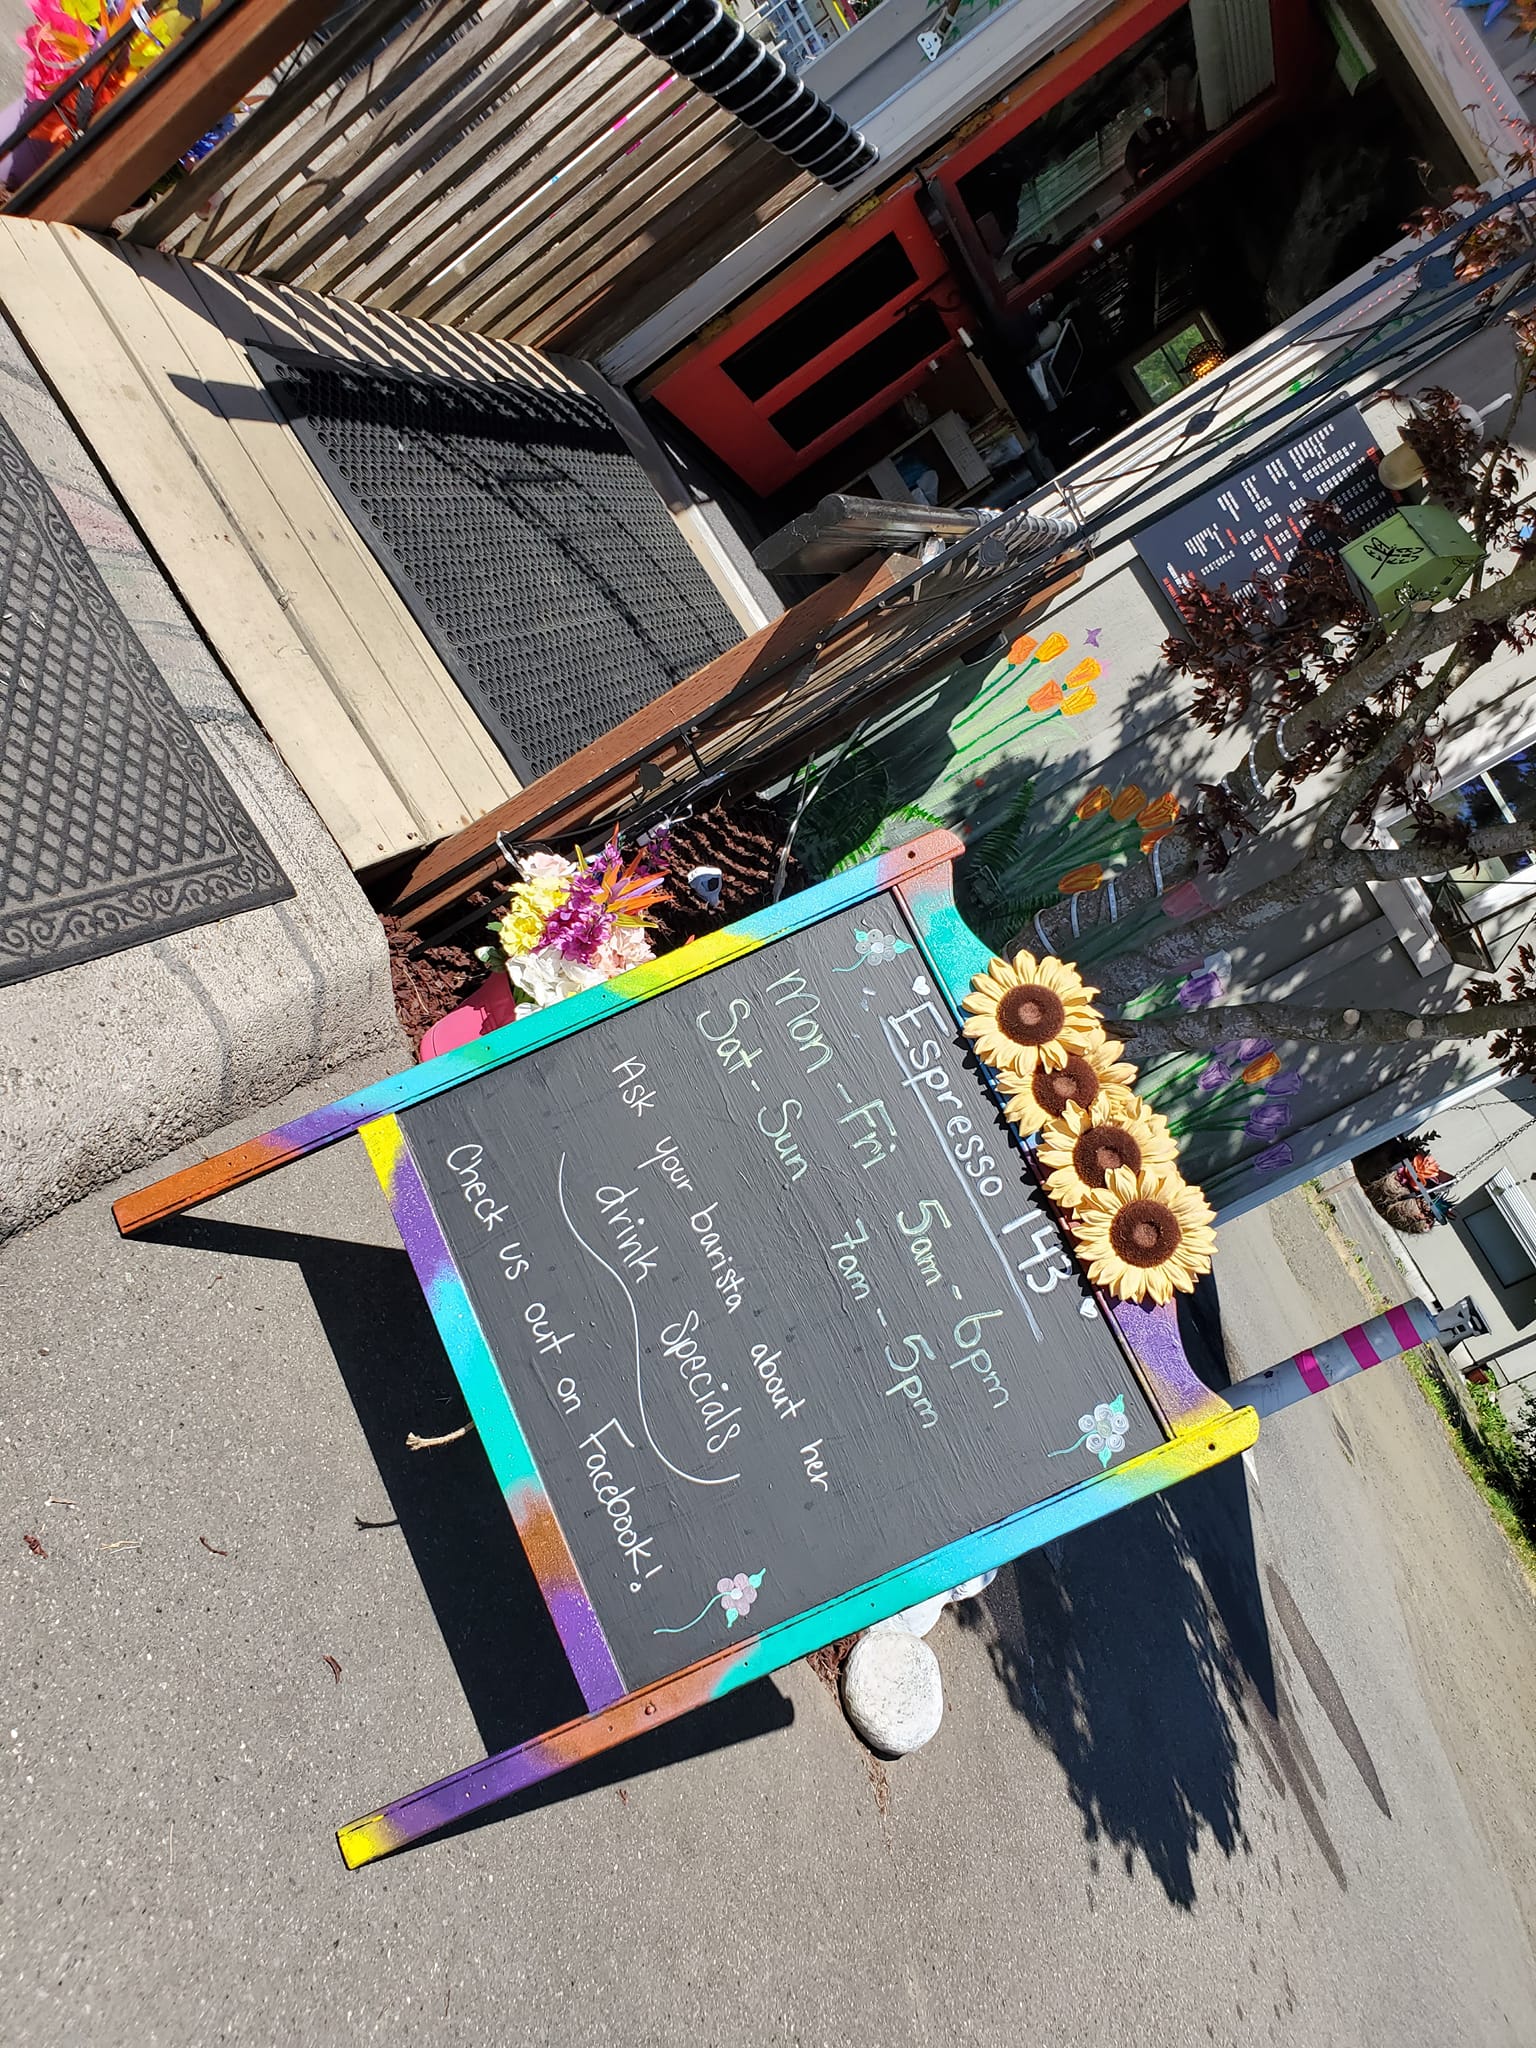 Espresso 143
Mon - Fri 5am - 6pm
Sat - Sun 7am - 5pm
Ask your barista about her
drink specials
Check us out on Facebook!